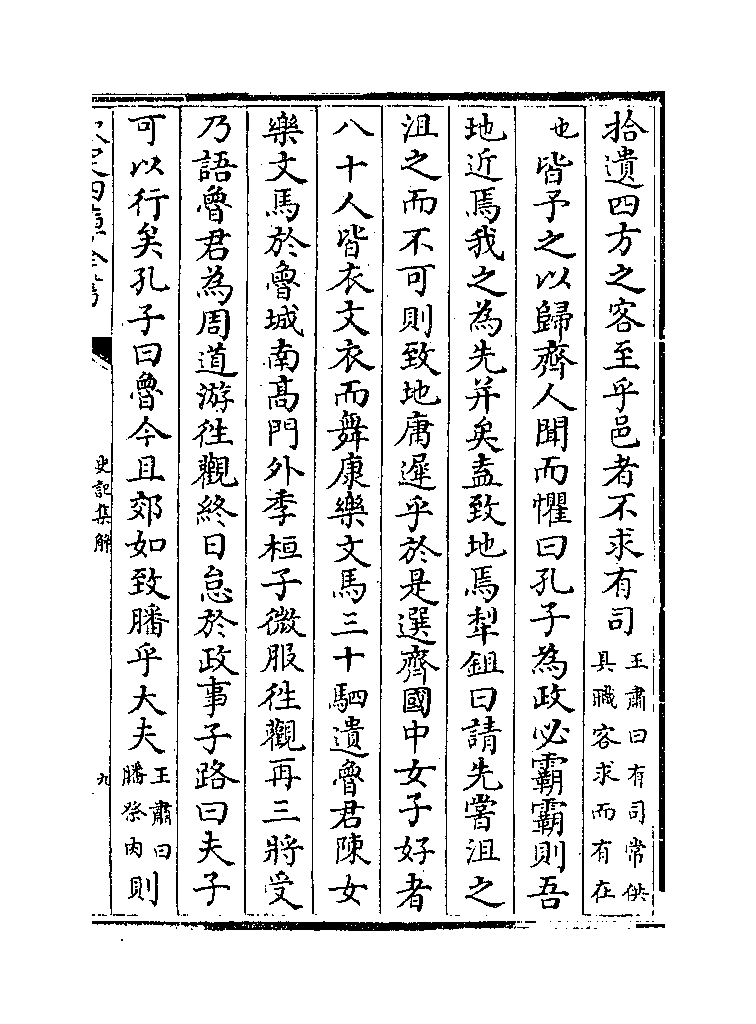 拾遺四方之客至乎邑者不求有司王肅曰有司常供具職客求而有在
也皆予之以歸齊人聞而懼曰孔子為政必霸霸則吾
地近焉我之為先并矣盍致地焉犁鉏曰請先嘗沮之
沮之而不可則致地庸遲乎於是選齊國中女子好者
八十人皆衣文衣而舞康樂文馬三十駟遺魯君陳女
樂文馬於魯城南髙門外季桓子微服徃觀再三將受
乃語魯君為周道游徃觀終日怠於政事子路曰夫子
可以行矣孔子曰魯今且郊如致膰乎大夫王肅曰膰祭肉則
欽定四庫全書
史記集解
九